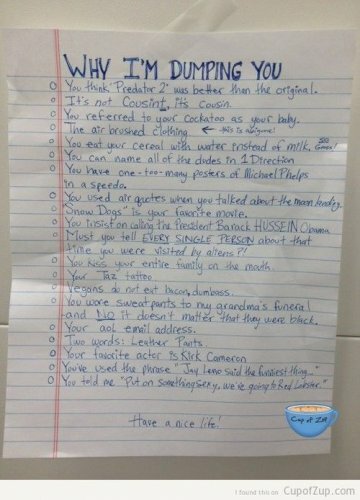 WHY I'M DUMPING YOU
You think 'Predator 2' was better than the original.
It's not Cousint, it's cousin.
You referred to your Cockatoo as your baby.
The air brushed clothing ← this is a big one!
You eat your cereal with water instead of milk. SOO Gross!
You can name all of the dudes in 1 Direction
You have one-too-many posters of Michael Phelps
in a speedo.
You used air quotes when you talked about the moon landing.
"Snow Dogs" is your favorite movie.
You insist on calling the President Barack HUSSEIN Obama
Must you tell EVERY SINGLE PERSON about that
time you were visited by aliens?!
You kiss your entire family on the mouth.
Your Taz tattoo
Vegans do not eat bacon, dumbass.
You wore sweatpants to my grandma's funeral
-and NO it doesn't matter that they were black.
Your aol email address.
Two words: Leather Pants.
Your favorite actor is Kirk Cameron
You've used the phrase "Jay Leno said the funniest thing..."
You told me "Put on something sexy, we're going to Red Lobster."
Have a nice life!
Cup of Zup
I found this on CupofZup.com